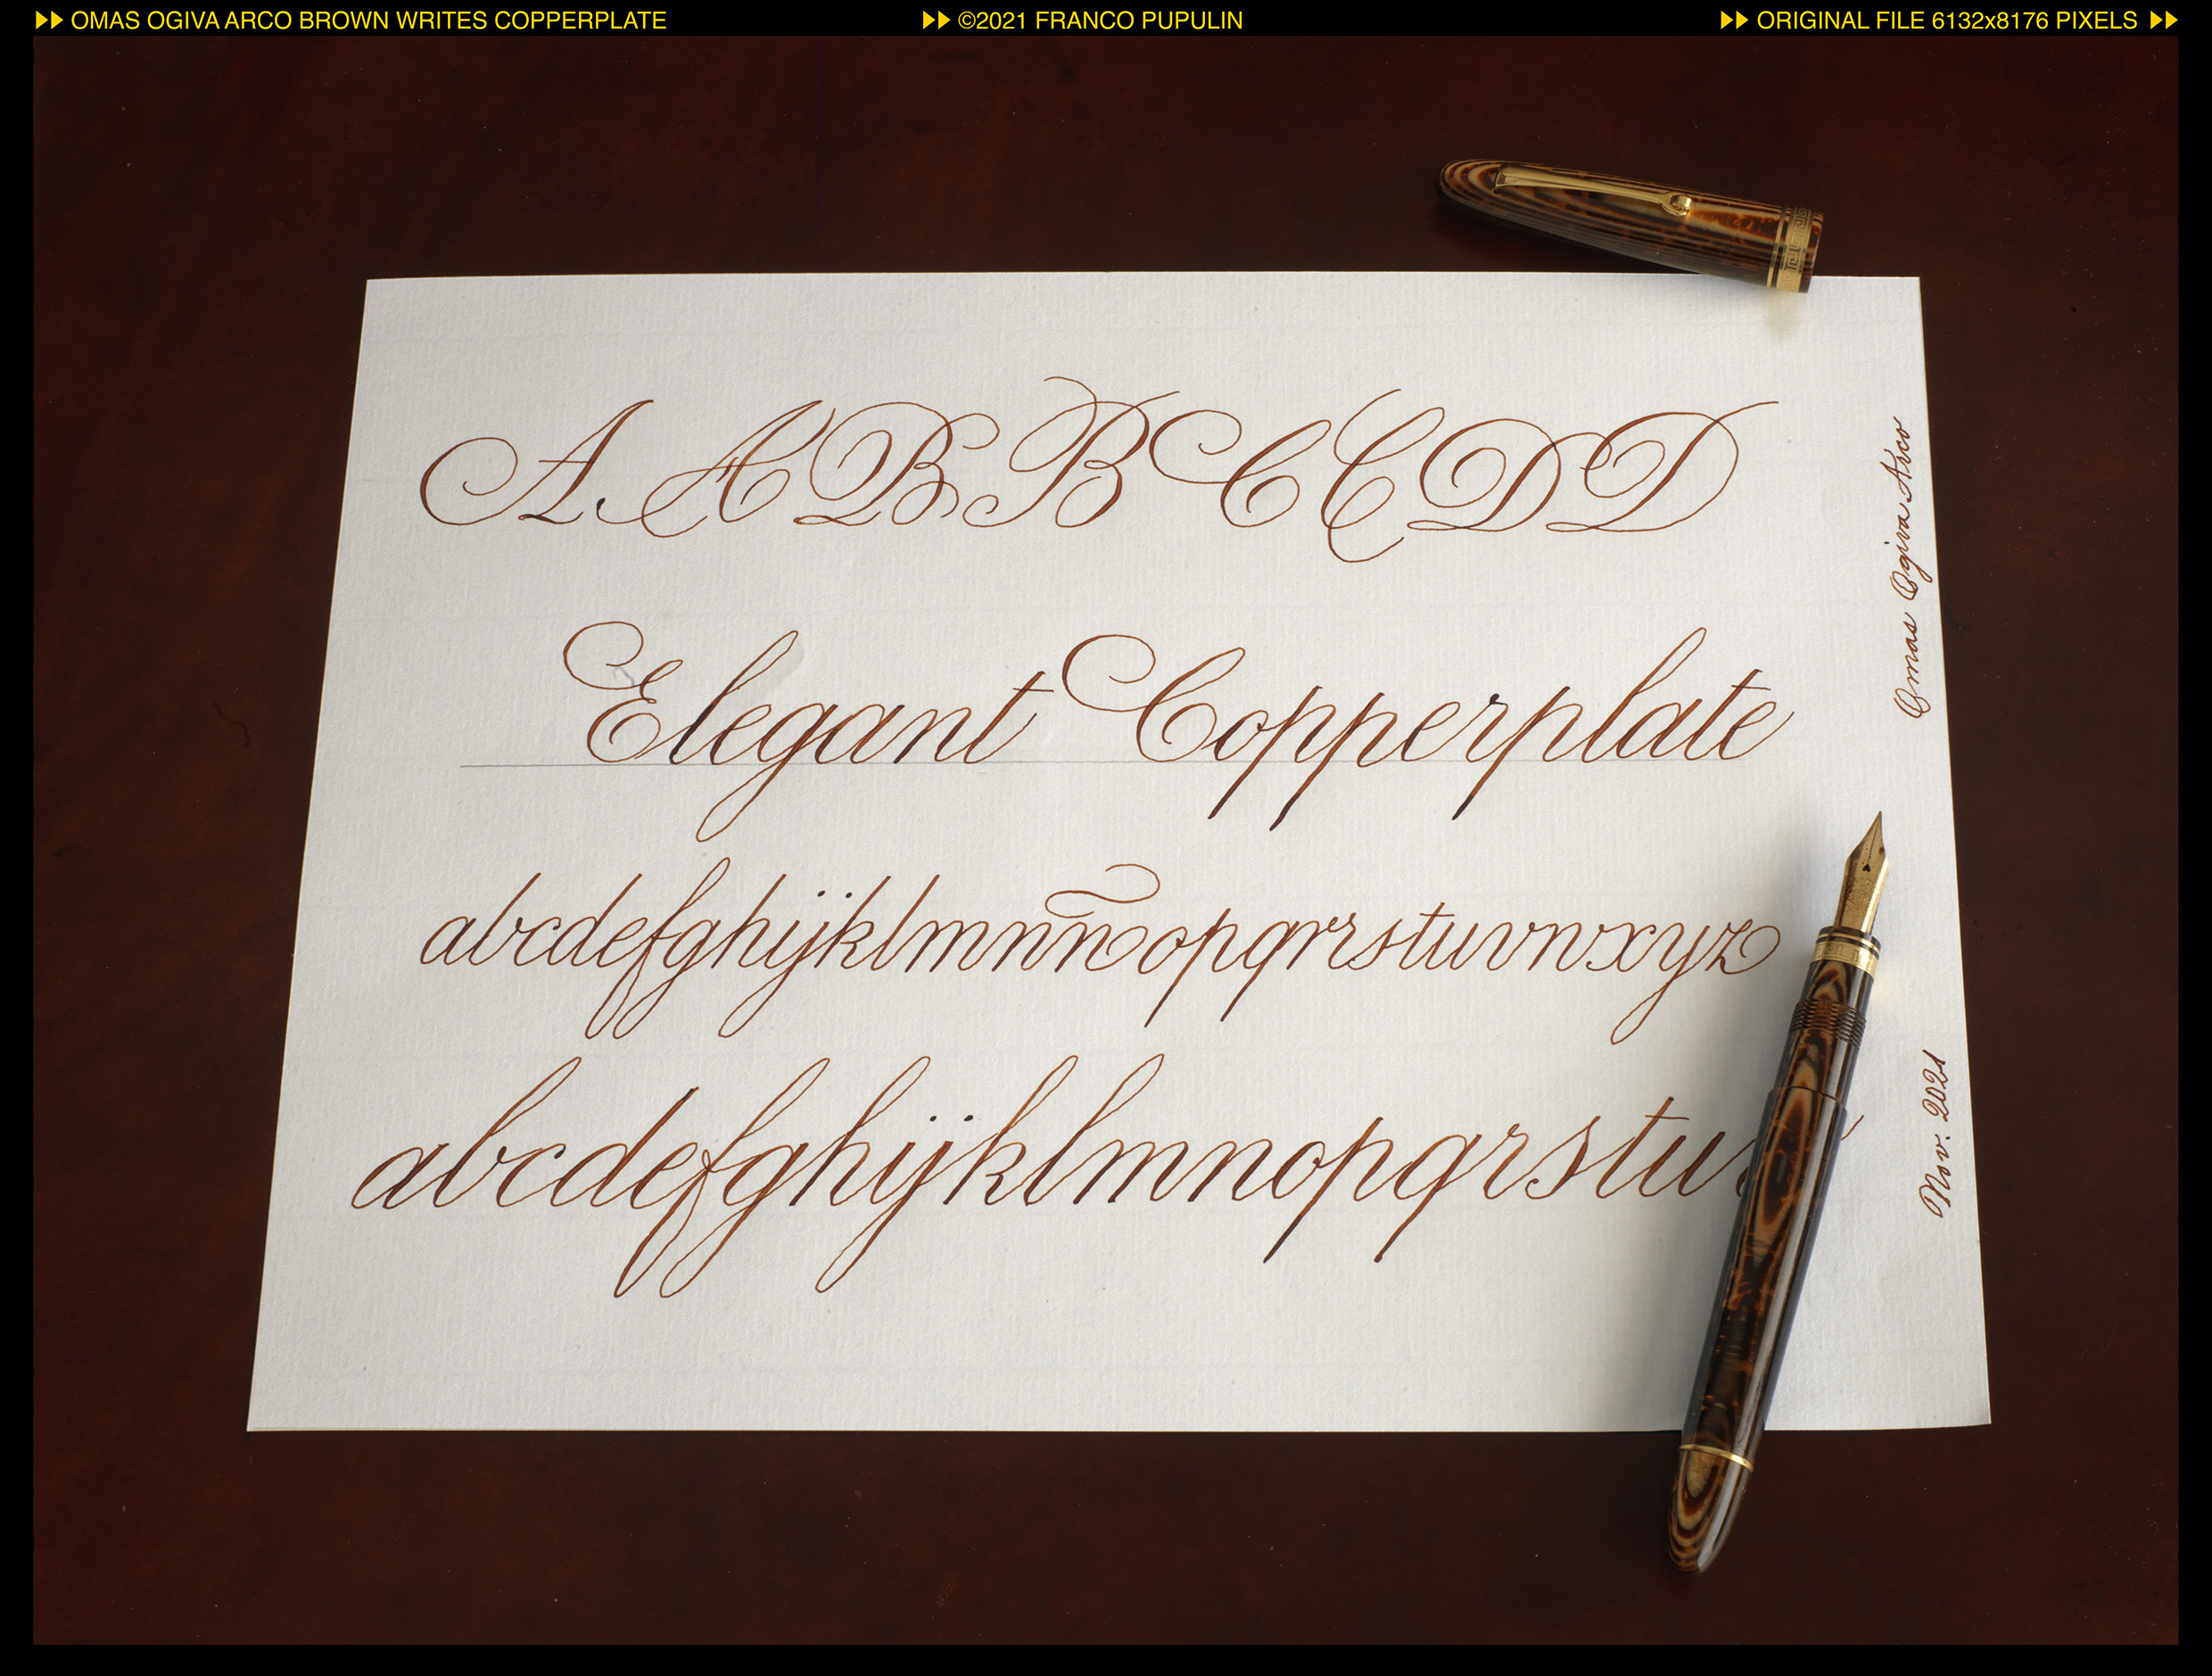 OMAS OGIVA ARCO BROWN WRITES COPPERPLATE
©2021 FRANCO PUPULIN
ORIGINAL FILE 6132x8176 PIXELS
A A B B C C D D
Elegant Copperplate
abcdefghijklmnñopqrrstuvwxyz
abcdefghijklmnopqrstuv
Omas Ogiva Arco
Nov. 2021